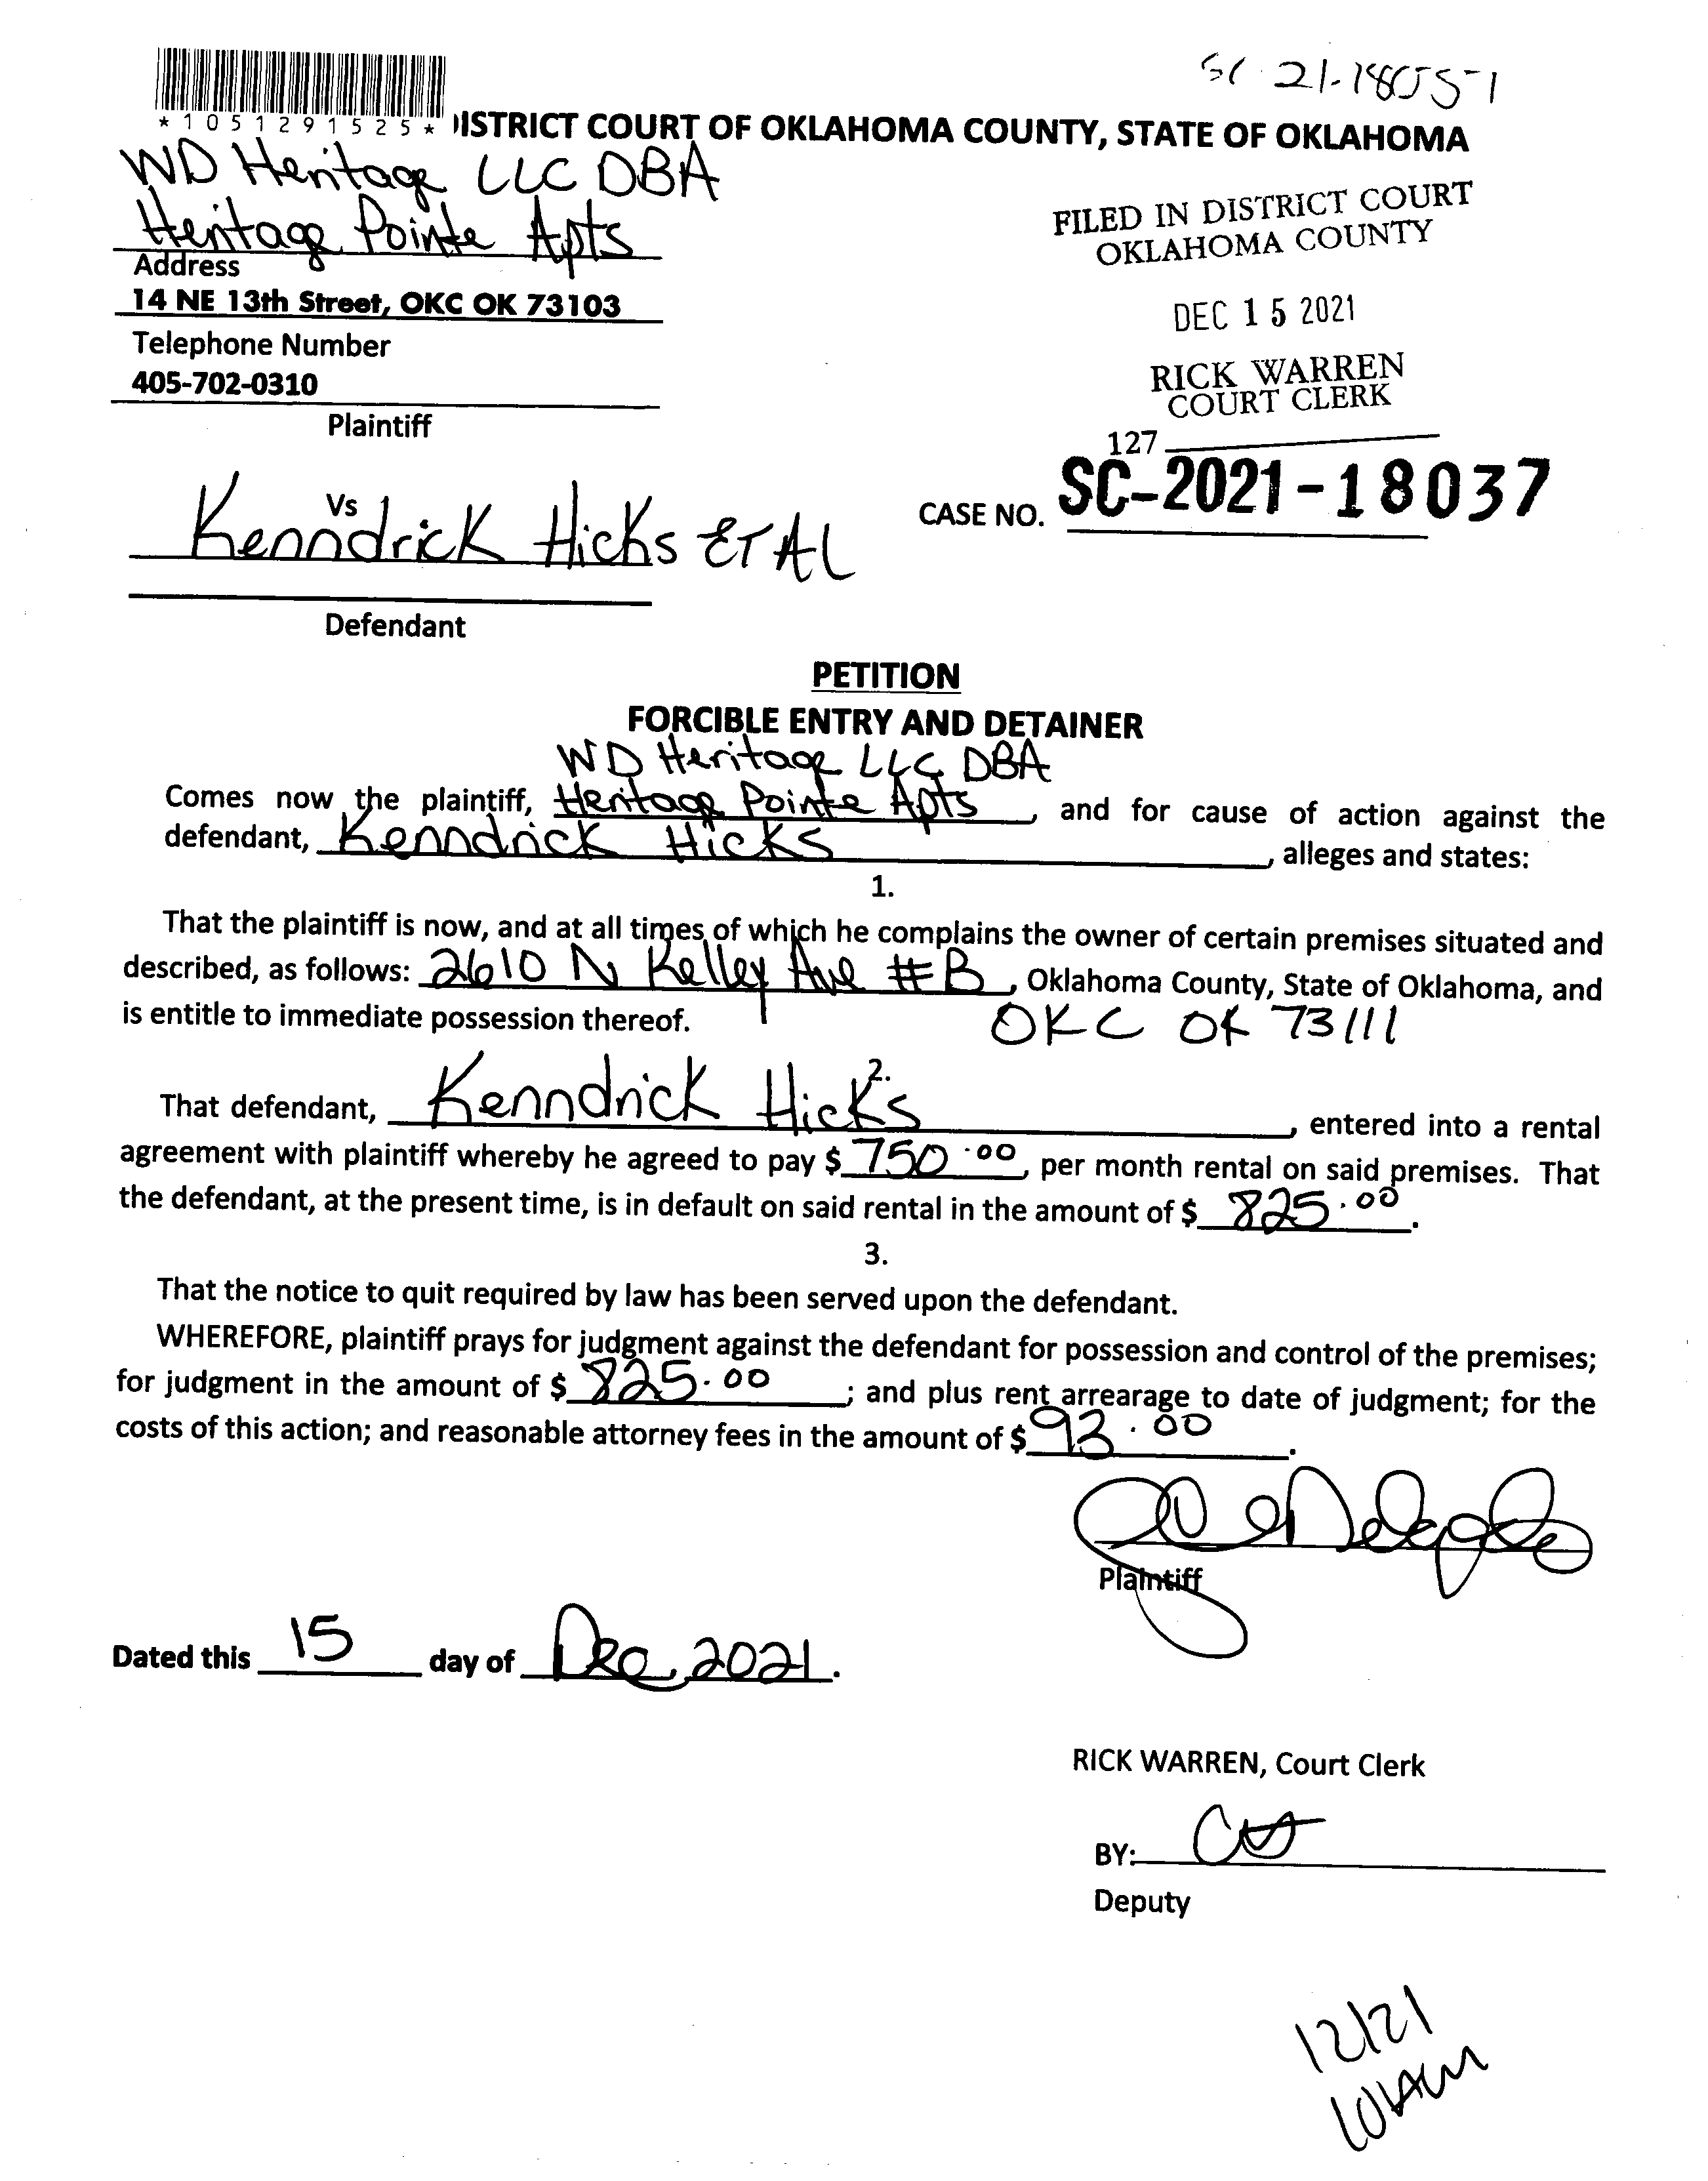 SC 21-18037
*1051291525* DISTRICT COURT OF OKLAHOMA COUNTY, STATE OF OKLAHOMA
WD Heritage LLC DBA
Heritage Pointe Apts
Address
14 NE 13th Street, OKC OK 73103
Telephone Number
405-702-0310
Plaintiff
FILED IN DISTRICT COURT
OKLAHOMA COUNTY
DEC 15 2021
RICK WARREN
COURT CLERK
127
CASE NO. SC-2021-18037
Vs
Kenndrick Hicks ET AL
Defendant
PETITION
FORCIBLE ENTRY AND DETAINER
WD Heritage LLC DBA
Comes now the plaintiff, Heritage Pointe Apts, and for cause of action against the
defendant, Kenndrick Hicks, alleges and states:
1.
That the plaintiff is now, and at all times of which he complains the owner of certain premises situated and
described, as follows: 2610 N Kelley Ave #B, Oklahoma County, State of Oklahoma, and
is entitle to immediate possession thereof. OKC OK 73111
2.
That defendant, Kenndrick Hicks, entered into a rental
agreement with plaintiff whereby he agreed to pay $ 750.00, per month rental on said premises. That
the defendant, at the present time, is in default on said rental in the amount of $ 825.00.
3.
That the notice to quit required by law has been served upon the defendant.
WHEREFORE, plaintiff prays for judgment against the defendant for possession and control of the premises;
for judgment in the amount of $ 825.00; and plus rent arrearage to date of judgment; for the
costs of this action; and reasonable attorney fees in the amount of $ 93.00.
Plaintiff
Dated this 15 day of Dec, 2021.
RICK WARREN, Court Clerk
BY:
Deputy
12/21
10AM